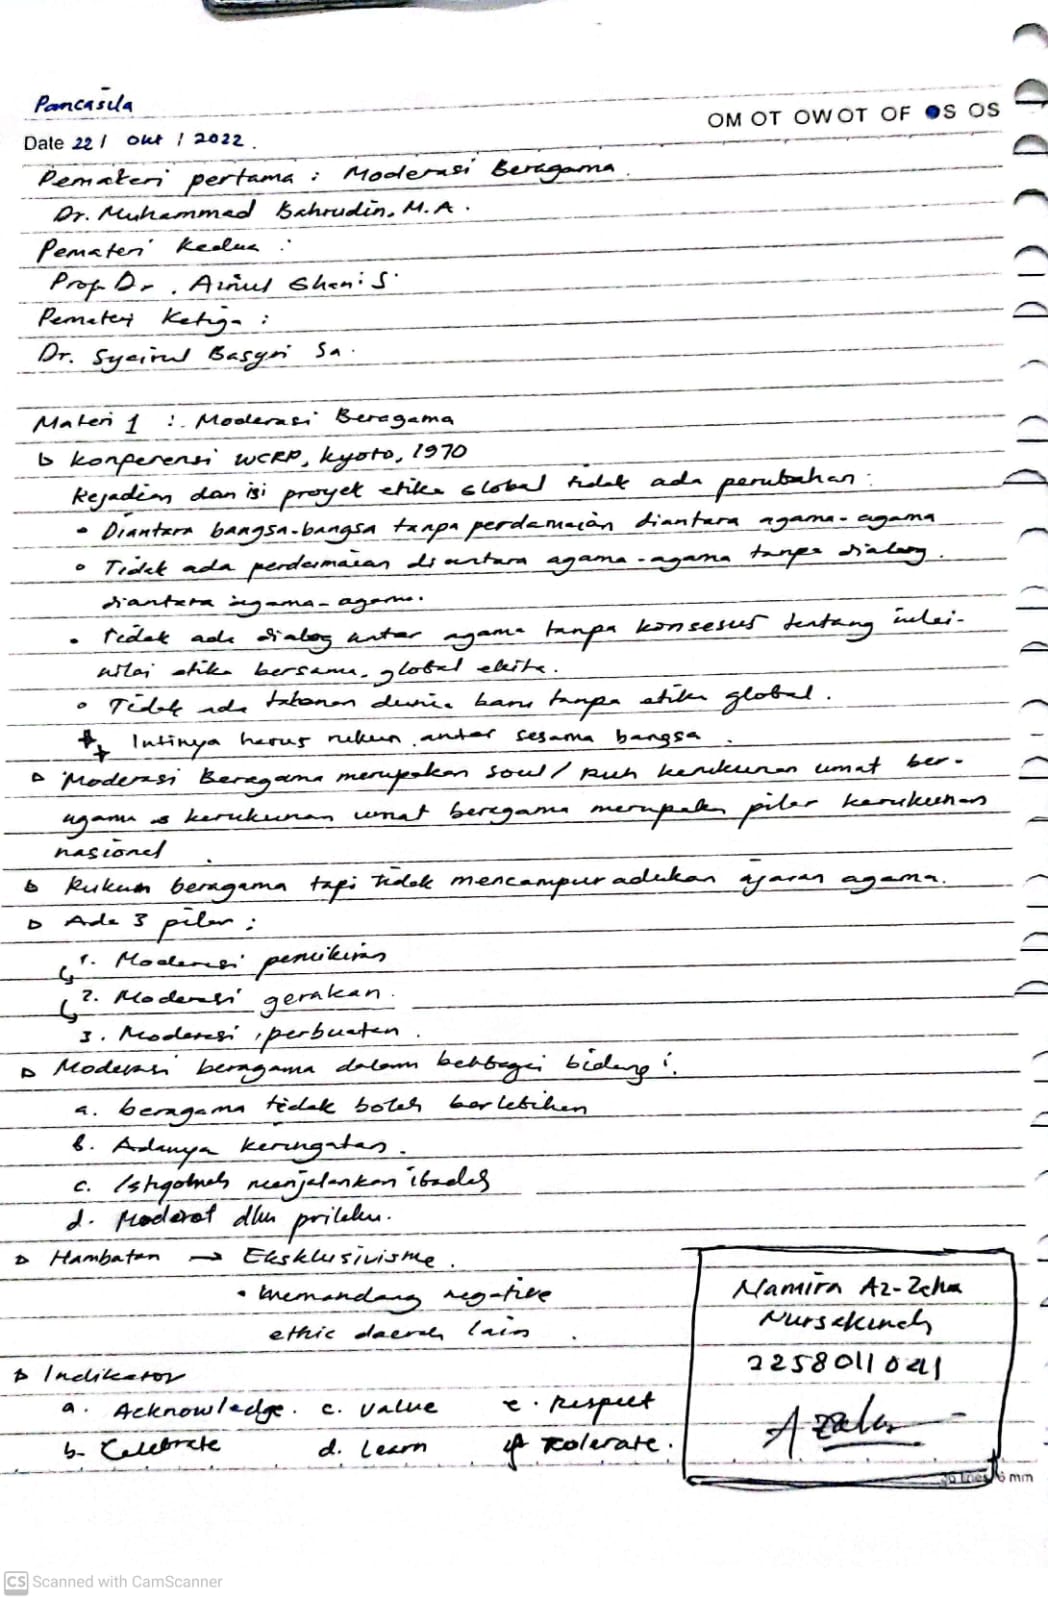 Pancasila
OM OT OW OT OF OS OS
Date 22 / Okt / 2022.
Pemateri pertama : Moderasi Beragama.
Dr. Muhammad Bahrudin, M.A.
Pemateri Kedua :
Prof. Dr. Ainul Ghani S.
Pemateri Ketiga :
Dr. Syairul Basyri Sa.
Materi 1 : Moderasi Beragama
Konferensi WCRP, kyoto, 1970
Kejadian dan isi proyek etika Global tidak ada perubahan :
• Diantara bangsa-bangsa tanpa perdamaian diantara agama-agama
• Tidak ada perdamaian diantara agama-agama tanpa dialog
diantara agama-agama.
• Tidak ada dialog antar agama tanpa konsesus tentang nilai-
nilai etika bersama, global
• Tidak ada tatanan dunia baru tanpa etika global.
Intinya harus rukun antar sesama bangsa.
Moderasi Beragama merupakan soul / Ruh kerukunan umat ber-
agama & kerukunan umat beragama merupakan pilar kerukunan
nasional
Rukun beragama tapi tidak mencampur adukan ajaran agama.
Ada 3 pilar :
1. Moderasi pemikiran
2. Moderasi gerakan.
3. Moderasi perbuatan.
Moderasi beragama dalam berbagai bidang :
a. beragama tidak boleh berlebihan
b. Adanya keringatan.
c. Istiqomah menjalankan ibadah
d. Moderat dlm prilaku.
Hambatan → Eksklusivisme.
• memandang negative
ethic daerah lain.
Indikator
a. Acknowledge. c. value e. Respect
b. Celebrate d. learn f. Tolerate.
Namira Az-Zahra
Nursakinah
2258011041
30 Lines, 6 mm
CS Scanned with CamScanner